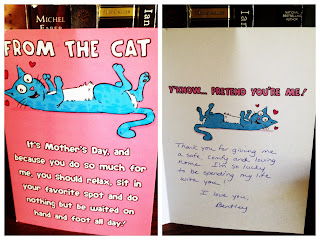 MICHEL
FABER
Ian
FROM THE CAT
It's Mother's Day, and
because you do so much for
me, you should relax, sit in
your favorite spot and do
nothing but be waited on
hand and foot all day!
Ian
NATIONAL
BESTSELLING
AUTHOR
Y'KNOW... PRETEND YOU'RE ME!
Thank you for giving me
a safe, comfy and loving
home. I'm so lucky
to be spending my life
with you.
I love you,
Bentley